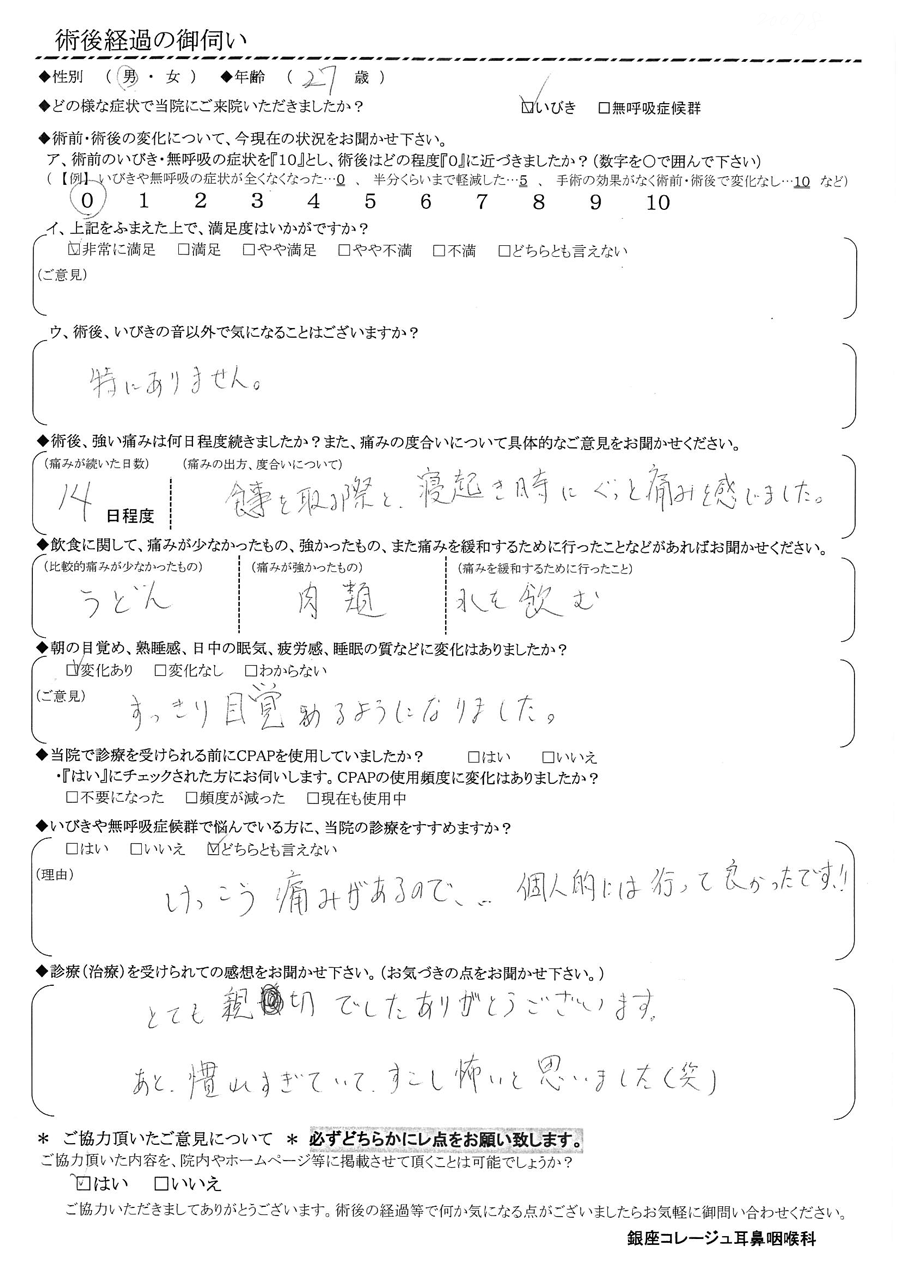 術後経過の御伺い
◆性別 （ 男 ・ 女 ） ◆年齢 （ 27 歳 ）
◆どの様な症状で当院にご来院いただきましたか？ ☑いびき □無呼吸症候群
◆術前・術後の変化について、今現在の状況をお聞かせ下さい。
ア、術前のいびき・無呼吸の症状を『10』とし、術後はどの程度『0』に近づきましたか？（数字を〇で囲んで下さい）
（ 【例】 いびきや無呼吸の症状が全くなくなった…0 、 半分くらいまで軽減した…5 、 手術の効果がなく術前・術後で変化なし…10 など）
0 1 2 3 4 5 6 7 8 9 10
イ、上記をふまえた上で、満足度はいかがですか？
☑非常に満足 □満足 □やや満足 □やや不満 □不満 □どちらとも言えない
（ご意見）
ウ、術後、いびきの音以外で気になることはございますか？
特にありません。
◆術後、強い痛みは何日程度続きましたか？また、痛みの度合いについて具体的なご意見をお聞かせください。
（痛みが続いた日数） （痛みの出方、度合いについて）
14 日程度 食事を取る際と、寝起き時にぐっと痛みを感じました。
◆飲食に関して、痛みが少なかったもの、強かったもの、また痛みを緩和するために行ったことなどがあればお聞かせください。
（比較的痛みが少なかったもの） （痛みが強かったもの） （痛みを緩和するために行ったこと）
うどん 肉類 水を飲む
◆朝の目覚め、熟睡感、日中の眠気、疲労感、睡眠の質などに変化はありましたか？
☑変化あり □変化なし □わからない
（ご意見）
すっきり目覚めるようになりました。
◆当院で診療を受けられる前にCPAPを使用していましたか？ □はい □いいえ
・『はい』にチェックされた方にお伺いします。CPAPの使用頻度に変化はありましたか？
□不要になった □頻度が減った □現在も使用中
◆いびきや無呼吸症候群で悩んでいる方に、当院の診療をすすめますか？
□はい □いいえ ☑どちらとも言えない
（理由）
けっこう痛みがあるので、… 個人的には行って良かったです!!
◆診療（治療）を受けられての感想をお聞かせ下さい。（お気づきの点をお聞かせ下さい。）
とても親切でしたありがとうございます。
あと、慣れすぎていて、すこし怖いと思いました（笑）
＊ ご協力頂いたご意見について ＊ 必ずどちらかにレ点をお願い致します。
ご協力頂いた内容を、院内やホームページ等に掲載させて頂くことは可能でしょうか？
☑はい □いいえ
ご協力いただきましてありがとうございます。術後の経過等で何か気になる点がございましたらお気軽に御問い合わせください。
銀座コレージュ耳鼻咽喉科